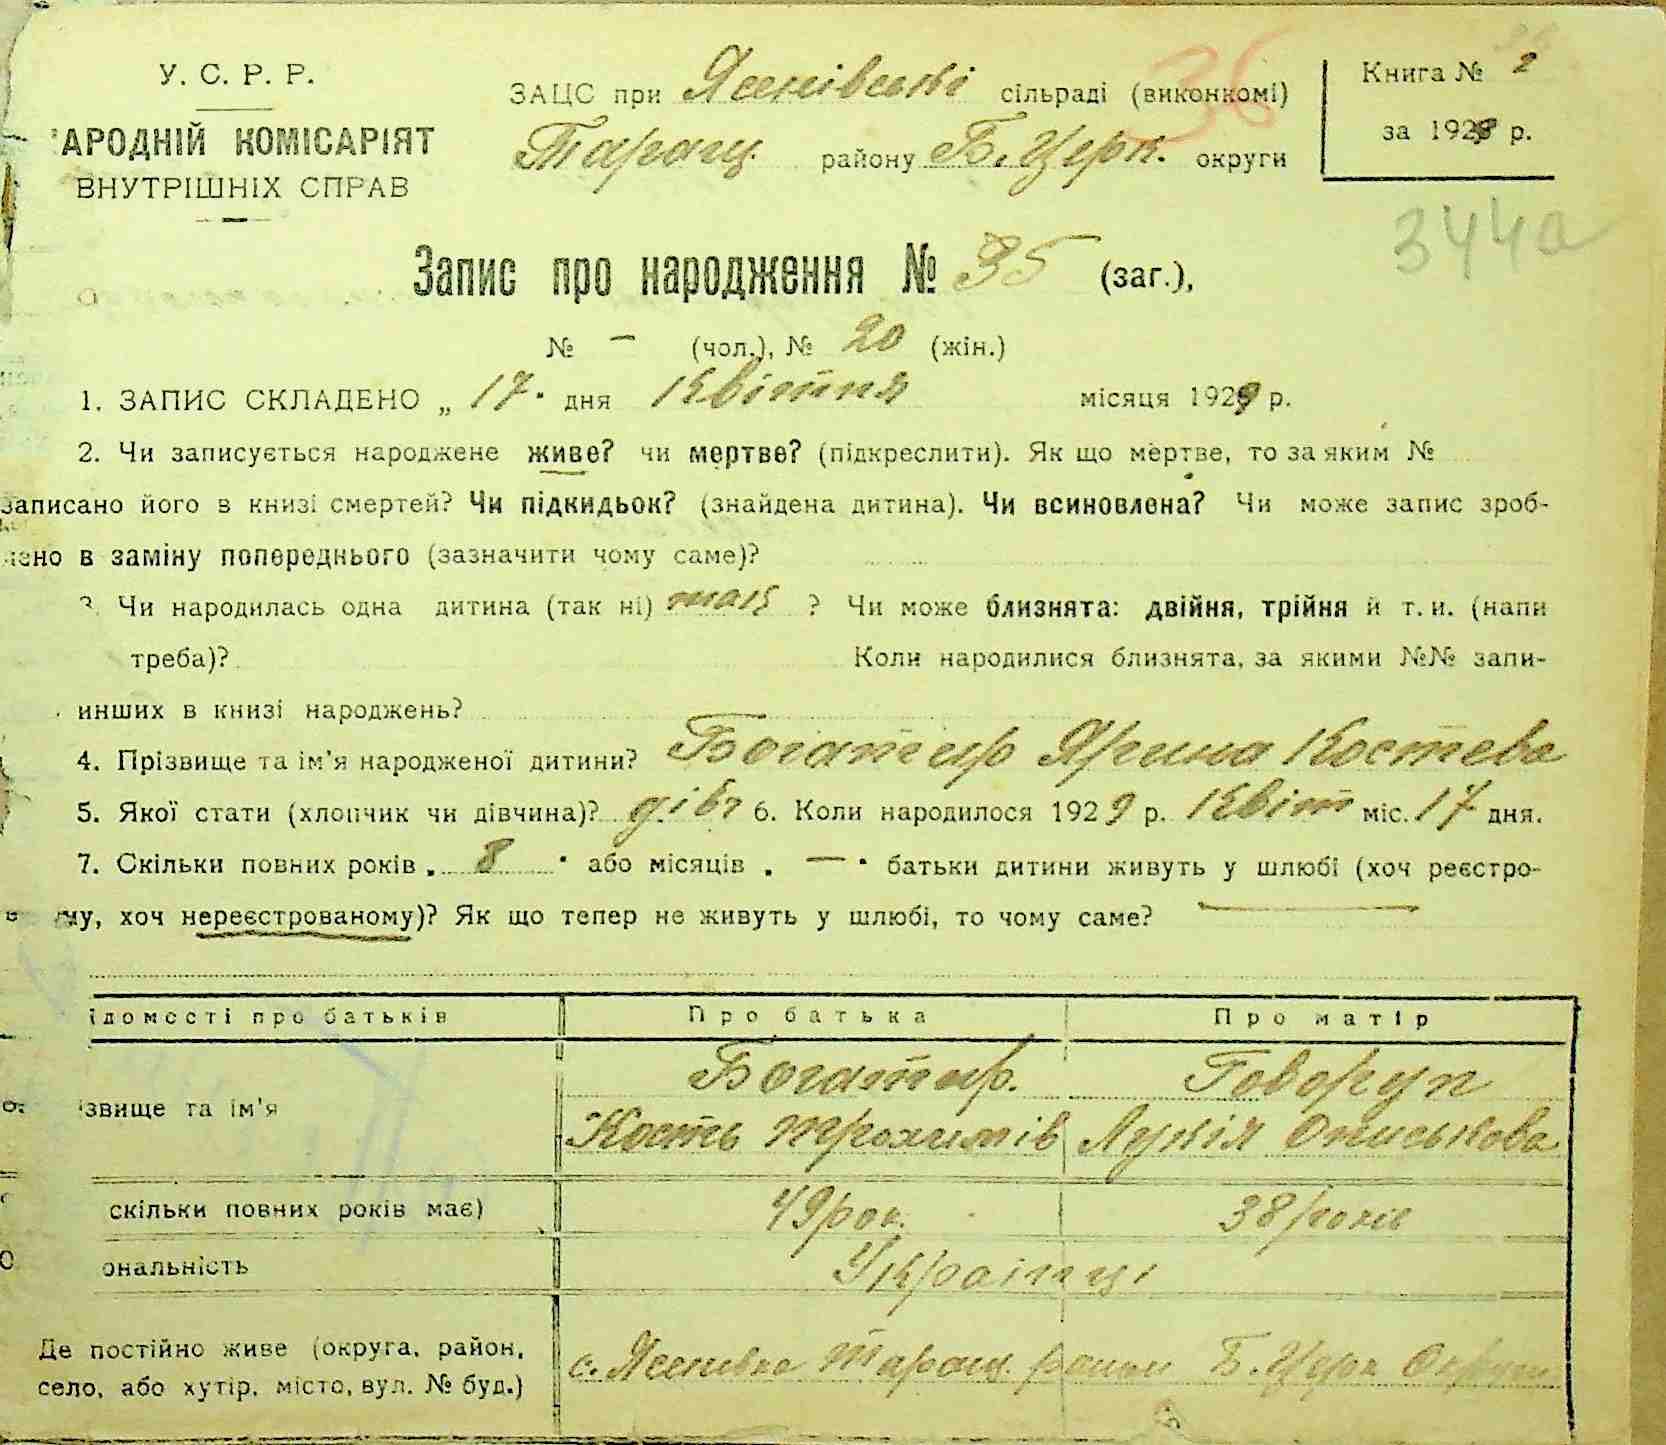 У. С. Р. Р.
АРОДНІЙ КОМІСАРІЯТ
ВНУТРІШНІХ СПРАВ
ЗАЦС при Ясенівські сільраді (виконкомі)
Таращ. району Б. Церк. округи
36
Книга № 2
за 1929 р.
344а
Запис про народження № 35 (заг.),
№ — (чол.), № 20 (жін.)
1. ЗАПИС СКЛАДЕНО „ 17. дня Квітня місяця 1929 р.
2. Чи записується народжене живе? чи мертве? (підкреслити). Як що мертве, то за яким №
записано його в книзі смертей? Чи підкидьок? (знайдена дитина). Чи всиновлена? Чи може запис зроб-
лено в заміну попереднього (зазначити чому саме)?
3. Чи народилась одна дитина (так ні) так ? Чи може близнята: двійня, трійня й т. и. (напи
треба)? Коли народилися близнята, за якими №№ запи-
инших в книзі народжень?
4. Прізвище та ім'я народженої дитини? Богатир Ярина Костева
5. Якої стати (хлопчик чи дівчина)? дівч 6. Коли народилося 1929 р. Квіт міс. 17 дня.
7. Скільки повних років . 8 або місяців . — батьки дитини живуть у шлюбі (хоч реєстро-
му, хоч нереєстрованому)? Як що тепер не живуть у шлюбі, то чому саме? —
ідомості про батьків Про батька Про матір
Богатир. Говорун
ізвище та ім'я Кость Трохимів Лукія Описькова
скільки повних років має) 49 рок. 38 років
ональність Українці
Де постійно живе (округа, район,
село, або хутір, місто, вул. № буд.) с. Ясенівка Таращ. району Б. Церк Округи